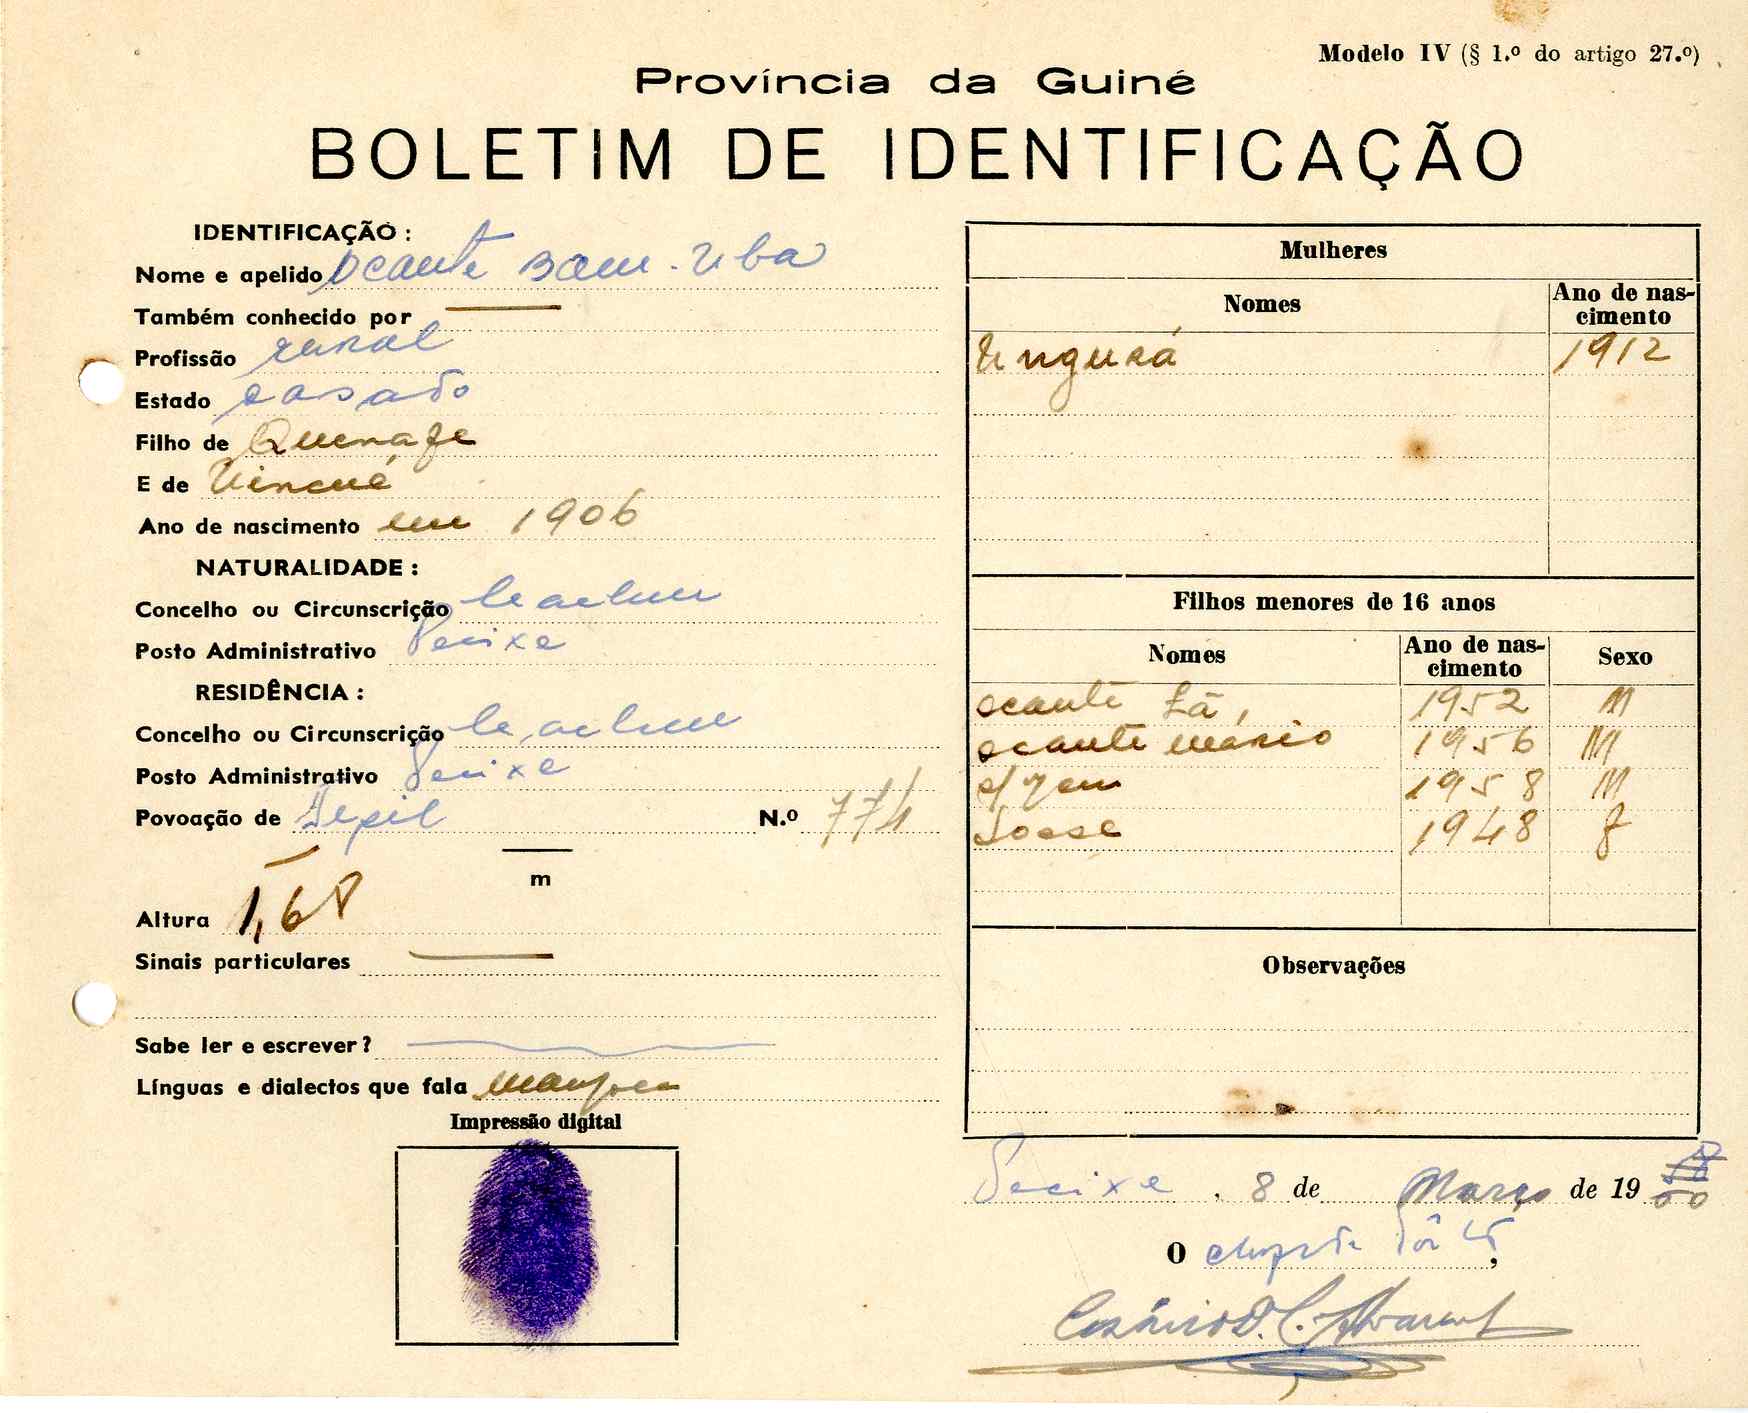 Modelo IV (§ 1.º do artigo 27.º)
Província da Guiné
BOLETIM DE IDENTIFICAÇÃO
IDENTIFICAÇÃO :
Nome e apelido Ocante Bom. Uba
Também conhecido por
Profissão rural
Estado casado
Filho de Quenafe
E de Vincué
Ano de nascimento em 1906
NATURALIDADE :
Concelho ou Circunscrição Cacheu
Posto Administrativo Pecixe
RESIDÊNCIA :
Concelho ou Circunscrição Cacheu
Posto Administrativo Pecixe
Povoação de N.º 774
m
Altura 1,68
Sinais particulares
Sabe ler e escrever?
Línguas e dialectos que fala Manjaca
Impressão digital
Mulheres
Nomes Ano de nascimento
Ungurá 1912
Filhos menores de 16 anos
Nomes Ano de nascimento Sexo
Ocante Lã, 1952 M
Ocante Mário 1956 M
1958 M
1948 F
Observações
Pecixe, 8 de Março de 19
O chefe de Pôsto,